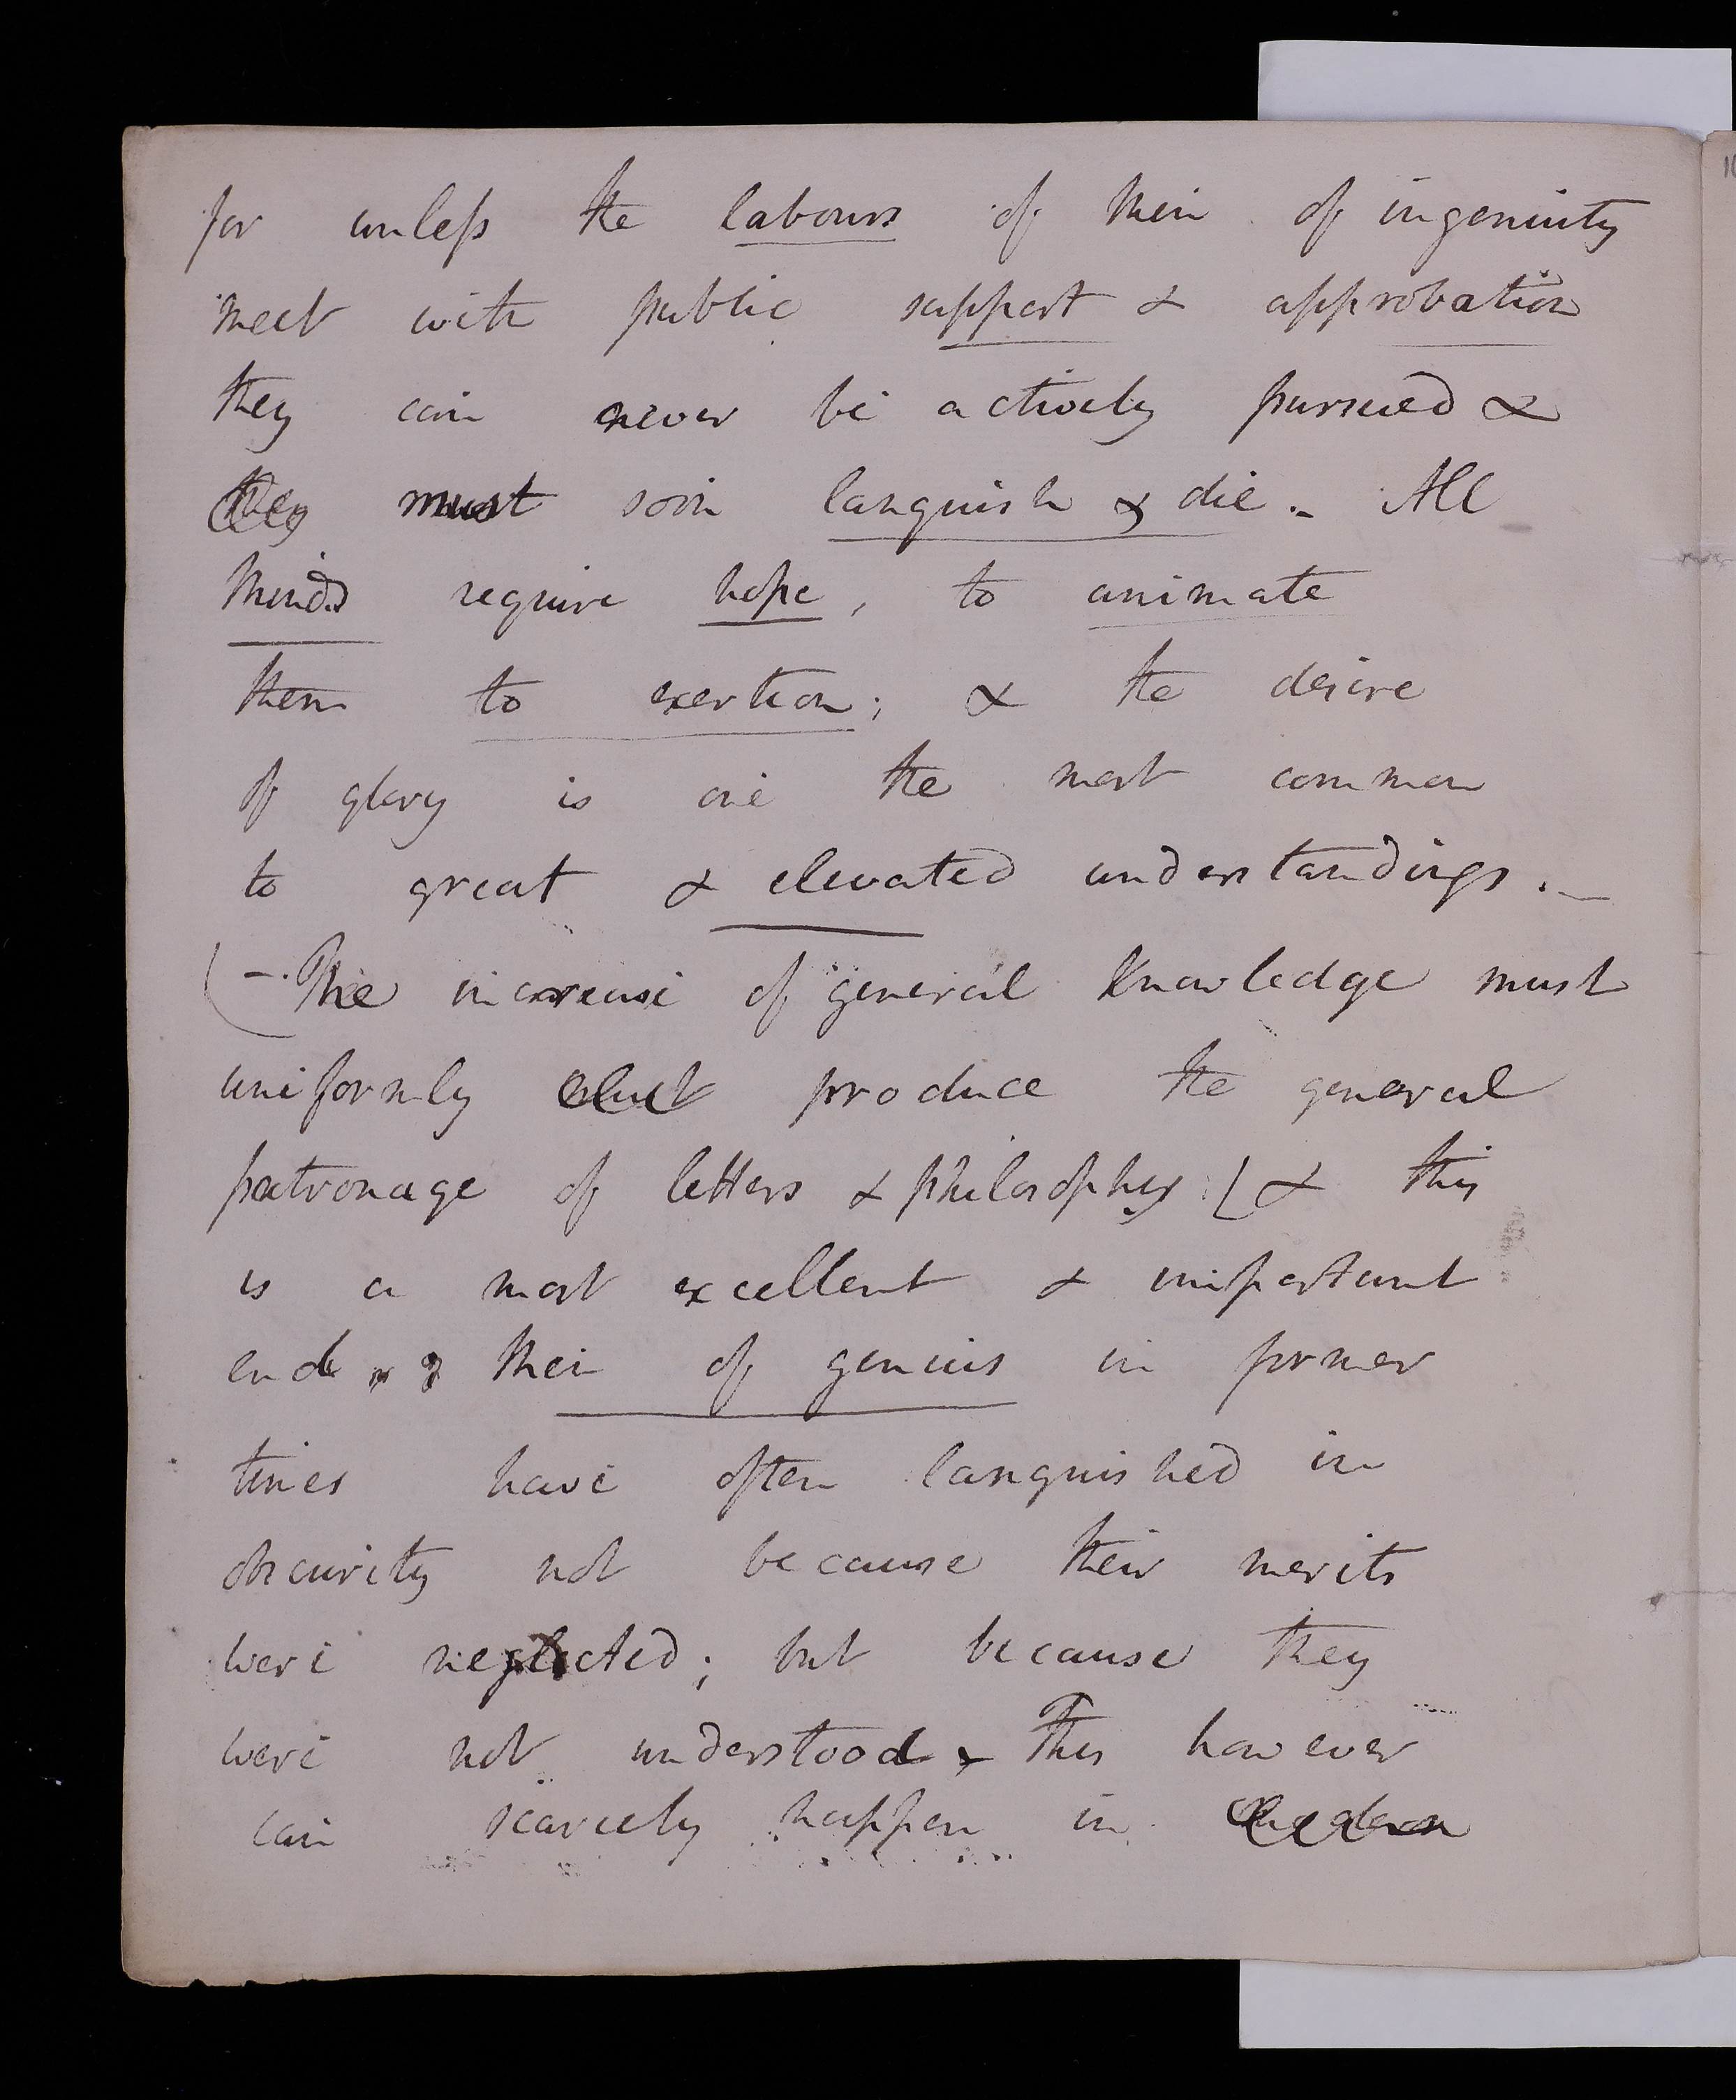 for unless the labours of Men of ingenuity
meet with public support & approbation
they can never be actively pursued &
they must soon languish & die. All
Minds require hope, to animate
them to exertion; & the desire
of glory is one the most common
to great & elevated understandings. _
(-. The increase of general Knowledge must
uniformly produce the general
patronage of letters & philosophy; ( & this
is a most excellent & important
end Men of genius in former
times have often languished in
obscurity not because their merits
were neglected; but because they
were not understood - This however
can scarcely happen in